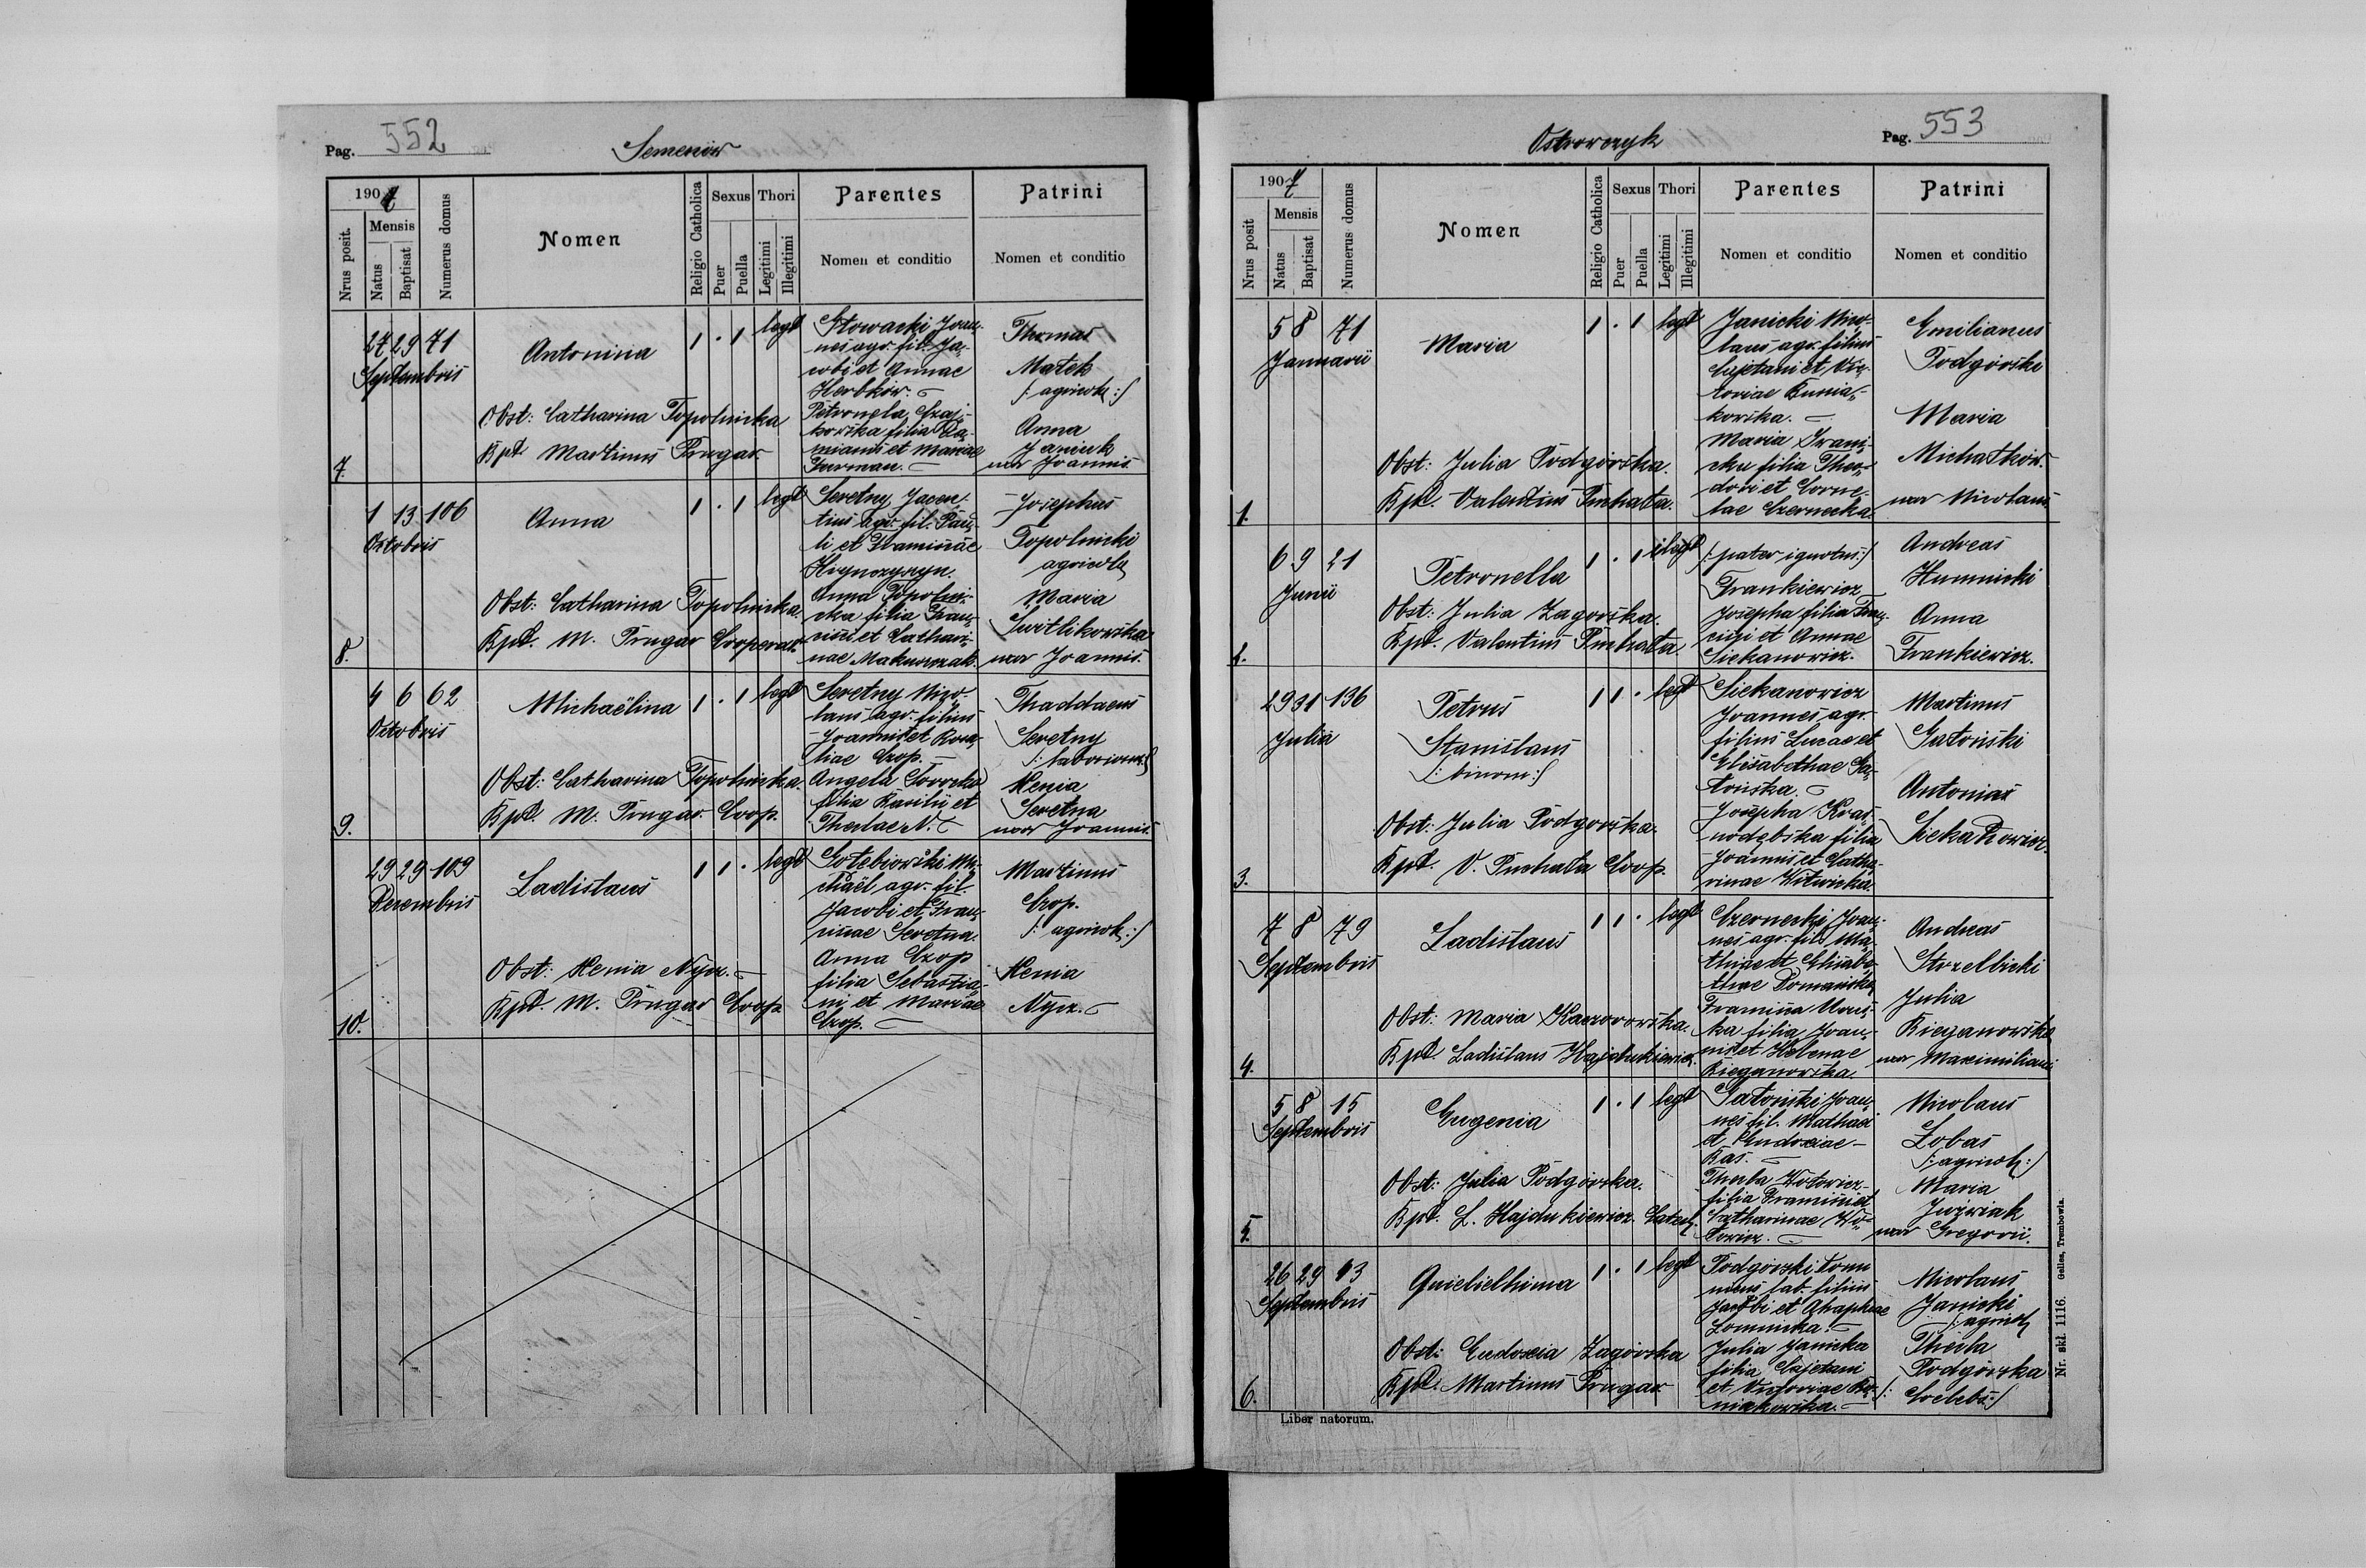 Pag. 552
Semenów
190 7
Nrus posit.
Mensis
Natus
Baptisat
Numerus domus
Nomen
Religio Catholica
Sexus
Puer
Puella
Thori
Legitimi
Illegitimi
Parentes
Nomen et conditio
Patrini
Nomen et conditio
7.
27 29 71
Septembris
Antonina
1 · 1 legt
Obst: Catharina Topolnicka
Bpt. Martinus Prugar
Słowacki Joan-
nes agr. fil. Ja-
cobi et Annae
Herbków.
Petronela Czaj-
kowska filia Da-
miani et Mariae
Furman.
Thomas
Małek
/: agricola :/
Anna
Janiuk
uxor Joannis
8.
1 13 106
Octobris
Anna
1 · 1 legt
Obst: Catharina Topolnicka.
Bpt. M. Prugar Cooperat.
Seretny Jacen-
tius agr. fil. Pau-
li et Franciscae
Anna Topolni-
cka filia Fran-
cisci et Cathari-
nae
Josephus
Topolnicki
agricola
Maria
Świtlikowska
uxor Joannis.
9.
4 6 62
Octobris
Michaëlina
1 · 1 legt
Obst: Catharina Topolnicka.
Bpt. M. Prugar. Coop.
Seretny Nico-
laus agr. filius
Joannis et Rosa-
liae Czop.
Angela
filia Basilii et
Theclae N.
Thaddaeus
Seretny
Xenia
Seretna
uxor Joannis.
10.
29 29 109
Decembris
Ladislaus
1 1 · legt
Obst: Xenia Nycz.
Bpt. M. Prugar Coop.
Gołębiowski Mi-
chaël agr. fil.
Jacobi et Fran-
ciscae Seretna.
Anna Czop
filia Sebastia-
ni et Mariae
Czop.
Martinus
Czop.
/: agricola :/
Xenia
Nycz.
Ostrowczyk
Pag. 553
190 7
Nrus posit
Mensis
Natus
Baptisat
Numerus domus
Nomen
Religio Catholica
Sexus
Puer
Puella
Thori
Legitimi
Illegitimi
Parentes
Nomen et conditio
Patrini
Nomen et conditio
1.
5 8 71
Januarii
Maria
1 · 1 legt
Obst: Julia Podgórska.
Bpt. Valentinus Puchała.
Janicki Nico-
laus agr. filius
Cajetani et Vic-
toriae Bunia-
kowska.
Maria
cka filia Theo-
dori et Corne-
lae Czernecka.
Emilianus
Podgórski
Maria
Michałków.
uxor Nicolaus.
2.
6 9 21
Junii
Petronella
1 · 1 illegt
Obst: Julia Zagórska.
Bpt. Valentinus Puchała.
/: pater ignotus :/
Frankiewicz
Josepha filia Fran-
cisci et Annae
Siekanowicz.
Andreas
Humnicki
Anna
Frankiewicz.
3.
29 31 136
Julia
Petrus
Stanislaus
/: binom :/
1 1 · legt
Obst: Julia Podgórska.
Bpt. V. Puchała Coop.
Siekanowicz
Joannes agr.
filius Lucae et
Elisabethae Sa-
łońska.
Josepha Kras-
nodębska filia
Joannis et Catha-
rinae Witwicka.
Martinus
Sałoński
Antonius
Siekanowicz.
4.
7 8 79
Septembris
Ladislaus
1 1 · legt
Obst: Maria Kaczorowska.
Bpt. Ladislaus Hajdukiewicz.
Czernecki Joan-
nes agr. fil. Ma-
thiae et Elisabe-
thae Domańska
ka filia Joan-
nis et Helenae
Bieganowska.
Andreas
Strzelbicki
Julia
Bieganowska
uxor Maximiliani
5.
5 8 15
Septembris
Eugenia
1 · 1 legt
Obst: Julia Podgórska.
Bpt. L. Hajdukiewicz. Catech.
Sałoński Joan-
nes fil. Mathaei
et Eudoxiae
Bas.
Thecla Wołowicz
filia Francisci et
Catharinae Wo-
łowicz.
Nicolaus
Łobas
/: agricola :/
Maria
Juzwiak
uxor Gregorii.
6.
26 29 13
Septembris
1 · 1 legt
Obst: Eudoxia Zagórska
Bpt. Martinus Prugar
Podgórski
lab. filius
Jacobi et Ahaphiae
Łomnicka.
Julia Janicka
filia Cajetani
et Victoriae Bu-
niakowska.
Nicolaus
Janicki
/: agricola
Thecla
Podgórska
/: Coelebs :/
Liber natorum.
Nr. skł. 1116. Gelles, Trembowla.